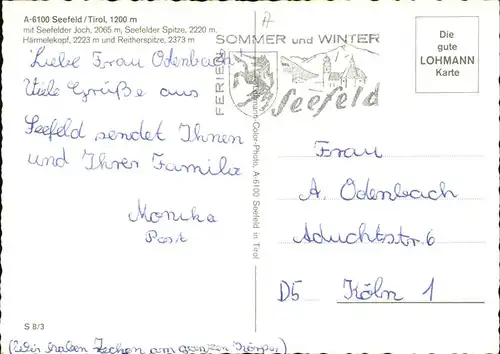 A-6100 Seefeld/Tirol, 1200 m
mit Seefelder Joch, 2065 m, Seefelder Spitze, 2220 m,
Härmelekopf, 2223 m und Reitherspitze, 2373 m
Liebe Frau Odenbach!
Viele Grüße aus
Seefeld sendet Ihnen
und Ihrer Familie
Monika
S 8/3
(Wir haben Zechen am ganzen Körper)
FERIEN
SOMMER und WINTER
Seefeld
Color-Photo, A-6100 Seefeld in Tirol
Die
gute
LOHMANN
Karte
Frau
A. Odenbach
Aduchtstr. 6
D5 Köln 1